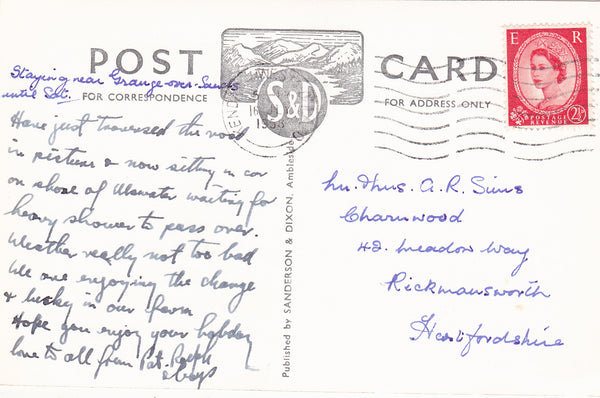 POST CARD
FOR CORRESPONDENCE
FOR ADDRESS ONLY
Staying near Grange-over-Sands
until Sat.
Have just traversed the road
in picture & now sitting in car
on shore of Ullswater waiting for
heavy shower to pass over.
Weather really not too bad
We are enjoying the change
& lucky in our farm
Hope you enjoy your holiday
love to all from Pat, Ralph
& boys
S&D
KENDAL
Published by SANDERSON & DIXON, Ambleside
E R
POSTAGE
REVENUE
2½
Mr. & Mrs. A. R. Sims
Charnwood
42. Meadow Way
Rickmansworth
Hertfordshire